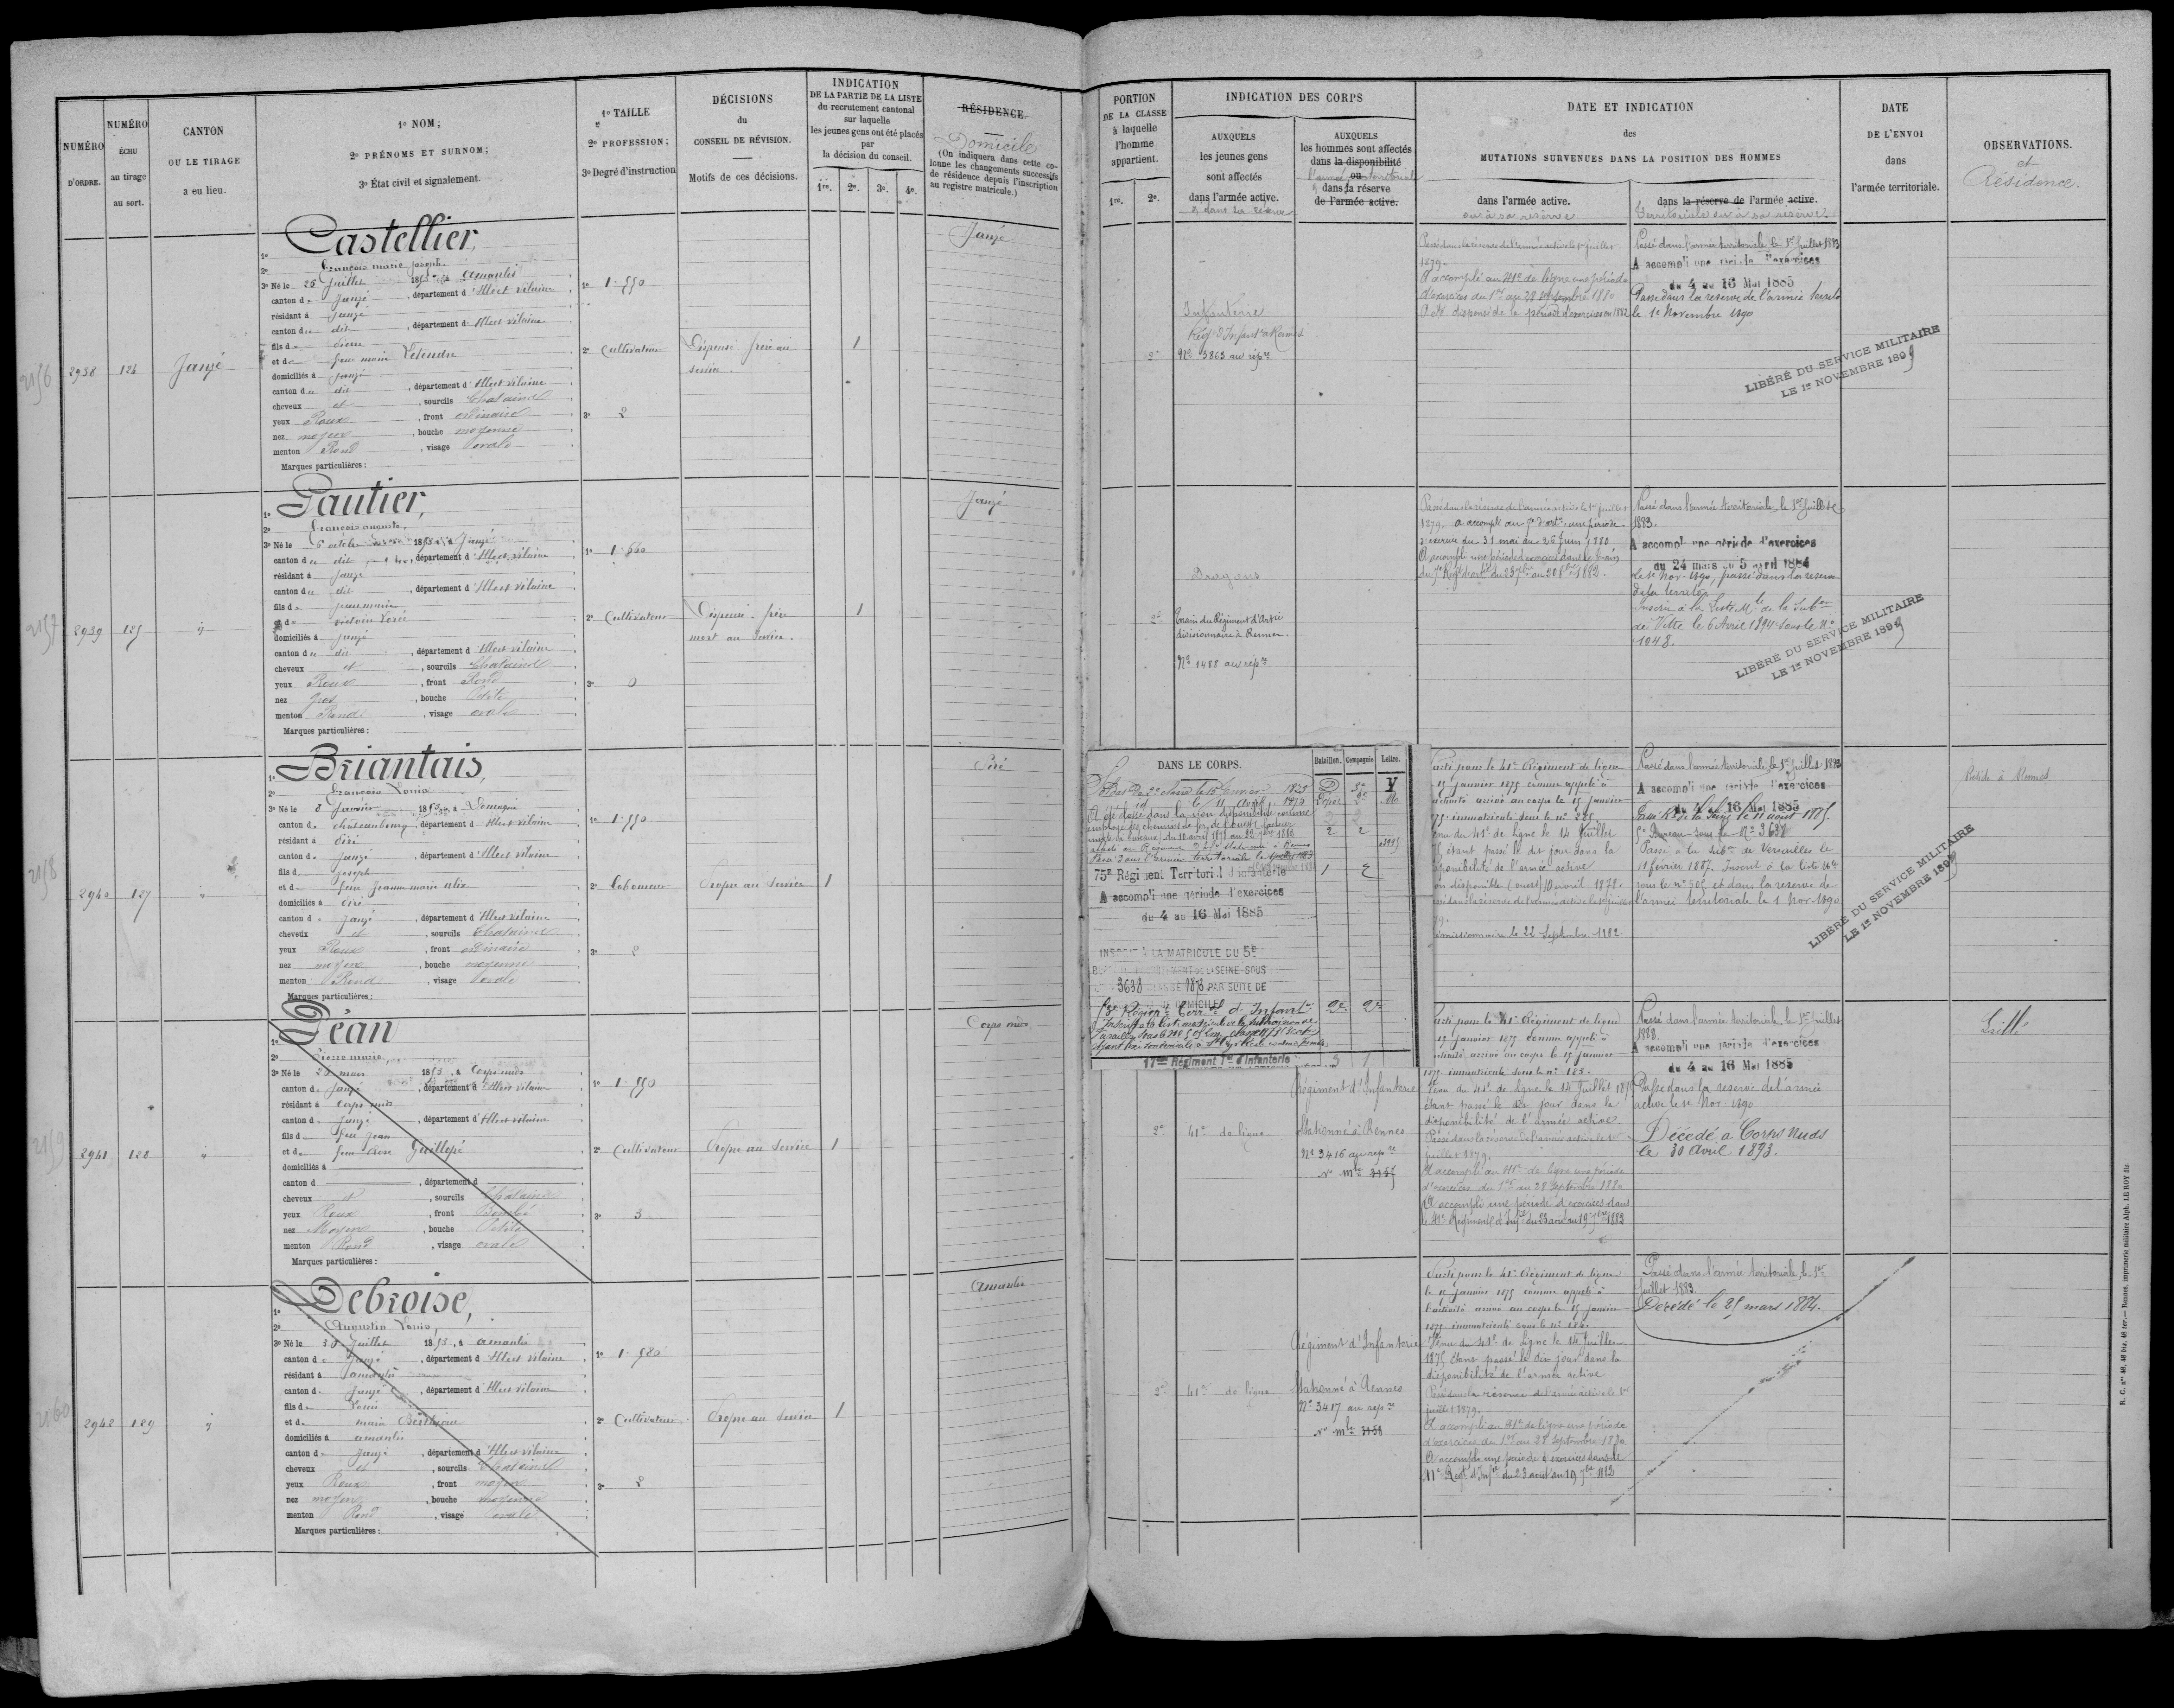 NUMÉRO
D'ORDRE.
NUMÉRO
ÉCHU
au tirage
au sort.
CANTON
OU LE TIRAGE
a eu lieu.
1º NOM;
2º PRÉNOMS ET SURNOM;
3º État civil et signalement.
1º TAILLE
2º PROFESSION;
3º Degré d'instruction
DÉCISIONS
du
CONSEIL DE RÉVISION.
Motifs de ces décisions.
INDICATION
DE LA PARTIE DE LA LISTE
du recrutement cantonal
sur laquelle
les jeunes gens ont été placés
par
la décision du conseil.
1re. 2e. 3e. 4e.
RÉSIDENCE.
Domicile
(On indiquera dans cette co-
lonne les changements successifs
de résidence depuis l'inscription
au registre matricule.)
2156
2938
124
Janzé
Castellier,
François marie joseph
3º Né le 26 juillet 1853, à amanlis
canton de Janzé, département d'Illeet vilaine
résidant à Janzé
canton du dit, département d'Illeet vilaine
fils de pierre
et de feue marie Letendre
domiciliés à Janzé
canton du dit, département d'Illeet vilaine
cheveux et, sourcils Chatains
yeux Roux, front ordinaire
nez moyen, bouche moyenne
menton Rond, visage ovale
Marques particulières:
1º 1.550
2º Cultivateur
3º 2
Dispensé frère au
service.
1
Janzé
2157
2939
125
Gautier,
François auguste,
3º Né le 6 octobre 1853, à Janzé
canton du dit, département d'Illeet vilaine
résidant à Janzé
canton du dit
fils de jean marie
et de victoire
domiciliés à Janzé
canton du dit, département d'Illeet vilaine
cheveux et, sourcils Chatains
yeux Roux, front Rond
nez gros, bouche Petite
menton Rond, visage ovale
Marques particulières:
1º 1.560
2º Cultivateur
3º 0
Dispensé. frère
mort au service.
1
Janzé
2158
2940
127
Briantais,
François Louis
3º Né le 2 Janvier 1853, à Domagné
canton de chateaubourg, département d'Illeet vilaine
résidant à Piré
canton de Janzé, département d'Illeet vilaine
fils de joseph
et de feue jeanne marie alix
domiciliés à Piré
canton de Janzé, département d'Illeet vilaine
cheveux et, sourcils Chatains
yeux Roux, front ordinaire
nez moyen, bouche moyenne
menton Rond, visage ovale
Marques particulières:
1º 1.550
2º Laboureur
3º 2
Propre au service
1
Piré
2159
2941
128
Déan
Pierre marie,
3º Né le 20 mars 1853, à Corps nuds
canton de Janzé, département d'Illeet vilaine
résidant à Corps nuds
canton de Janzé, département d'Illeet vilaine
fils de feu Jean
et de feue Guillopé
domiciliés à
canton d, département d
cheveux et, sourcils Chatains
yeux Roux, front Bombé
nez Moyen, bouche Petite
menton Rond, visage ovale
Marques particulières:
1º 1.550
2º Cultivateur
3º 3
Propre au service
1
Corps nuds
2160
2942
129
Debroise,
Augustin Louis,
3º Né le 30 Juillet 1853, à amanlis
canton de Janzé, département d'Illeet vilaine
résidant à amanlis
canton de Janzé, département d'Illeet vilaine
fils de Louis
et de marie
domiciliés à amanlis
canton de Janzé, département d'Illeet vilaine
cheveux et, sourcils Chatains
yeux Roux, front moyen
nez moyen, bouche moyenne
menton Rond, visage ovale
Marques particulières:
1º 1.580
2º Cultivateur
3º 2
Propre au service
1
Amanlis
PORTION
DE LA CLASSE
à laquelle
l'homme
appartient.
1re. 2e.
INDICATION DES CORPS
AUXQUELS
les jeunes gens
sont affectés
dans l'armée active.
et dans sa réserve
AUXQUELS
les hommes sont affectés
dans la disponibilité
ou
l'armée territoriale
dans la réserve
de l'armée active.
DATE ET INDICATION
des
MUTATIONS SURVENUES DANS LA POSITION DES HOMMES
dans l'armée active.
ou à sa réserve
dans la réserve de l'armée active.
territoriale ou à sa réserve.
DATE
DE L'ENVOI
dans
l'armée territoriale.
OBSERVATIONS.
et
Résidence.
2e
Infanterie
Regt d'Infantrie Rennes
No 3863 au répre
Passé dans la réserve de l'armée active le 1er juillet
1879.
A accompli au 41e de ligne une période
d'exercices du 1er au 28 septembre 1880
A été dispensé de la période d'exercices en 1882
Passé dans l'armée territoriale le 1er Juillet 1883
A accompli une période d'exercices
du 4 au 16 Mai 1885
Passé dans la réserve de l'armée territo
le 1e Novembre 1890
LIBÉRÉ DU SERVICE MILITAIRE
LE 1er NOVEMBRE 1899
2e
Dragons
Train du Régiment d'Artrie
divisionnaire à Rennes.
No 1488 au répre
Passé dans la réserve de l'armée active le 1er juillet
1879. a accompli au 7e d'artie une période
d'exercice du 31 mai au 26 juin 1880
A accompli une période d'exercices dans le train
Passé dans l'armée territoriale, le 1er Juillet
1883.
A accompli une période d'exercices
du 24 mars au 5 avril 1884
Le 1e Nov. 1890, passé dans la réserve
de la territle
Inscrit à la Liste Mle de la Subon
de Vitré le 6 Avril 1894 sous le No
1048.
LIBÉRÉ DU SERVICE MILITAIRE
LE 1er NOVEMBRE 1899
DANS LE CORPS.
Bataillon. Compagnie Lettre.
Soldat de 2e classe le 15 Janvier 1875
75e Régiment Territorial d'infanterie
A accompli une période d'exercices
du 4 au 16 Mai 1885
INSCRIT À LA MATRICULE DU 5E
BUREAU DE RECRUTEMENT DE LA SEINE SOUS
3638 CLASSE 1873 PAR SUITE DE
DOMICILE
17me Régiment Tal d'infanterie
Parti pour le 41e Régiment de ligne
15 janvier 1875 comme appelé à
activité arrivé au corps le 15 janvier
étant passé le dit jour dans la
disponibilité de l'armée active
démissionnaire le 22 Septembre 1882.
Passé dans l'armée territoriale, le 1er Juillet 1883
A accompli une période d'exercices
du 4 au 16 Mai 1885
5e Bureau sous le No 3638
Passé à la subon de Versailles le
11 février 1887. Inscrit à la liste Mle
sous le no 505 et dans la réserve de
l'armée territoriale le 1 Nov 1890
LIBÉRÉ DU SERVICE MILITAIRE
LE 1er NOVEMBRE 1899
Réside à Rennes
2e
41e de ligne
Régiment d'Infanterie
Stationné à Rennes
No 3416 au répre
No mle 3157
Parti pour le 41e Régiment de ligne
15 janvier 1875 comme appelé à
activité arrivé au corps le 15 janvier
1875 immatriculé sous le no 183.
Venu du 41e de ligne le 14 Juillet 1875
étant passé le dit jour dans la
disponibilité de l'armée active
Passé dans la réserve de l'armée active le 1er
juillet 1879.
A accompli au 41e de ligne une période
d'exercices du 1er au 28 septembre 1880
A accompli une période d'exercices dans
le 41e Régiment d'Infie du 23 août au 19 7bre 1882
Passé dans l'armée territoriale, le 1er Juillet
1883.
A accompli une période d'exercices
du 4 au 16 Mai 1885
Passé dans la réserve de l'armée
active le 1e Nov. 1890
Décédé à Corps Nuds
le 30 Avril 1893.
Laillé
2e
41e de ligne
Régiment d'Infanterie
Stationné à Rennes
No 3417 au répre
No mle 3158
Parti pour le 41e Régiment de ligne
le 15 janvier 1875 comme appelé à
l'activité arrivé au corps le 15 janvier
1875 immatriculé sous le no 184.
Venu du 41e de ligne le 14 Juillet
1875 étant passé le dit jour dans la
disponibilité de l'armée active
Passé dans la réserve de l'armée active le 1er
juillet 1879.
A accompli au 41e de ligne une période
d'exercices du 1er au 28 septembre 1880
A accompli une période d'exercices dans le
41e Regt d'Infie du 23 août au 19 7bre 1882
Passé dans l'armée territoriale, le 1er
Juillet 1883.
Décédé le 25 mars 1884.
R. C. nos 48, 48 bis, 48 ter. — Rennes, imprimerie militaire Alph. LE ROY fils